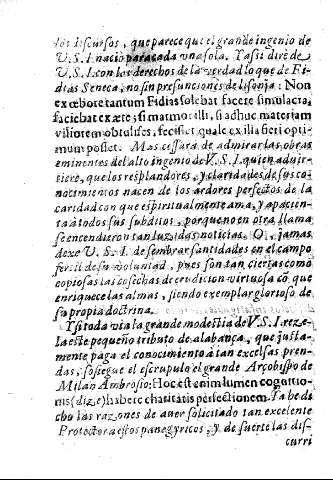 los discursos, que parece que el grande ingenio de
V. S. I. nacio para cada una sola. Y assi dirè de
V. S. I. con los derechos de la verdad lo que de Fi-
dias Seneca, no sin presunciones de lisonja: Non
ex ebore tantum Fidias solebat facere simulacra,
faciebat ex ære; si marmor illi, si adhuc materiam
viliorem obtulisses, fecisset quale ex illa fieri opti-
mum posset. Mas cessarà de admirar las obras
eminentes del alto ingenio de V. S. I. quien aduir-
tiere, que los resplandores, y claridades de sus co-
nocimientos nacen de los ardores perfectos de la
caridad con que espiritualmente ama, y apacien-
ta à todos sus subditos, porque no en otra llama
se encendieron tan luzidas noticias. O, jamas
dexe V. S. I. de sembrar santidades en el campo
fertil de su voluntad, pues son tan ciertas como
copiosas las cosechas de erudicion virtuosa cō que
enriquece las almas, siendo exemplar glorioso de
su propia doctrina.
Y si toda via la grande modestia de V. S. I. reze-
la este pequeño tributo de alabança, que justa-
mente paga el conocimiento à tan excelsas pren-
das, sossiegue el escrupulo el grande Arçobispo de
Milan Ambrosio: Hoc est enim lumen cogittio-
nis (dize) habere charitatis perfectionem. Ya he di
cho las razones de aver solicitado tan excelente
Protector a estos panegyricos, y de suerte las dis-
curri